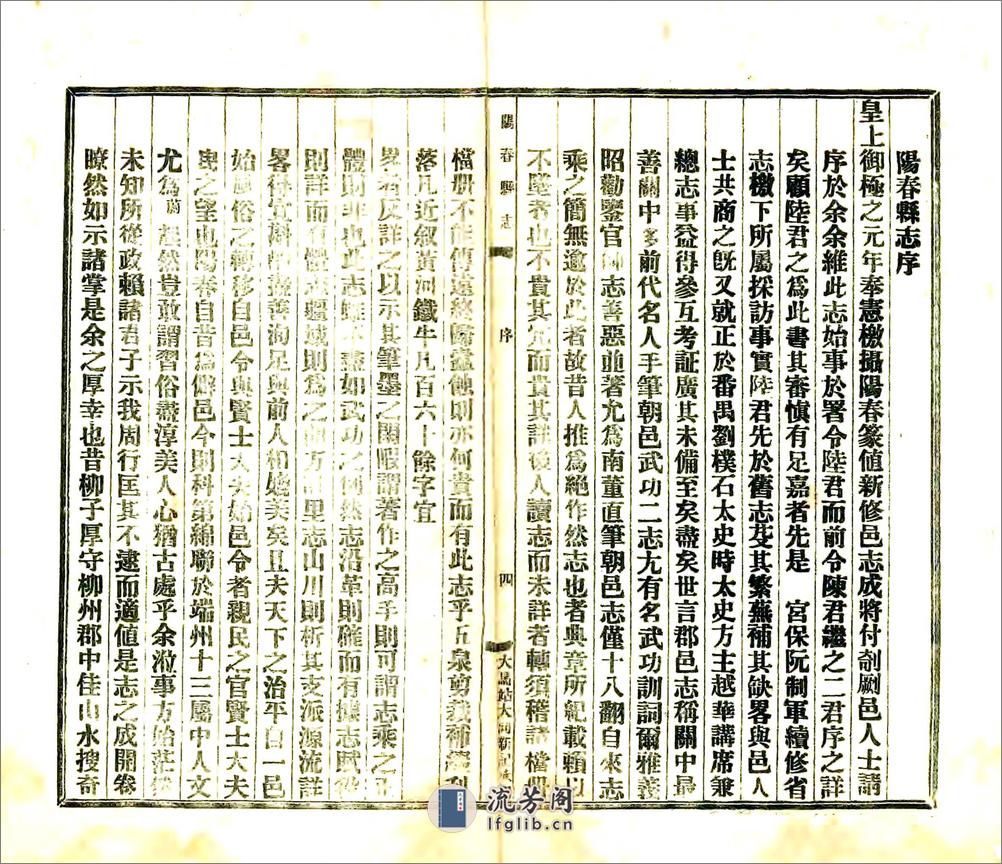 陽春縣志序
皇上御極之元年奉憲檄攝陽春篆值新修邑志成將付剞劂邑人士請
序於余余維此志始事於署令陸君而前令陳君繼之二君序之詳
矣顧陸君之爲此書其審慎有足嘉者先是 宮保阮制軍續修省
志檄下所屬採訪事實陸君先於舊志芟其繁蕪補其缺畧與邑人
士共商之既又就正於番禺劉樸石太史時太史方主越華講席兼
總志事益得參互考証廣其未備至矣盡矣世言郡邑志稱關中最
善關中多前代名人手筆朝邑武功二志尤有名武功訓詞爾雅義
昭勸鑒官師志善惡並著尤爲南董直筆朝邑志僅十八翻自來志
乘之簡無逾於此者故昔人推爲絕作然志也者典章所紀載賴以
不墜者也不貴其冗而貴其詳後人讀志而未詳者轉須稽諸檔冊
檔册不能傳遠終歸蠹蝕則亦何貴而有此志乎五泉剪裁補綴利
落凡近敘黃河鐵牛凡百六十餘字宜
畧者反詳之以示其筆墨之閒暇謂著作之高手則可謂志乘之正
體則非也此志雖不盡如武功之例然志沿革則確而有據志賦役
則詳而 志疆域則爲之 方 里志山川則析其支派源流詳
畧得宜斟 善洵足與前人相媲美矣且夫天下之治平自一邑
始風俗之轉移自邑令與賢士大夫始邑令者親民之官賢士大夫
民之望也陽春自昔爲僻邑今則科第綿聯於端州十三屬中人文
尤爲蔚起然豈敢謂習俗盡淳美人心猶古處乎余涖事方始茫然
未知所從政賴諸君子示我周行匡其不逮而適值是志之成開卷
瞭然如示諸掌是余之厚幸也昔柳子厚守柳州郡中佳山水搜奇
陽春縣志
序
四
流芳阁
lfglib.cn